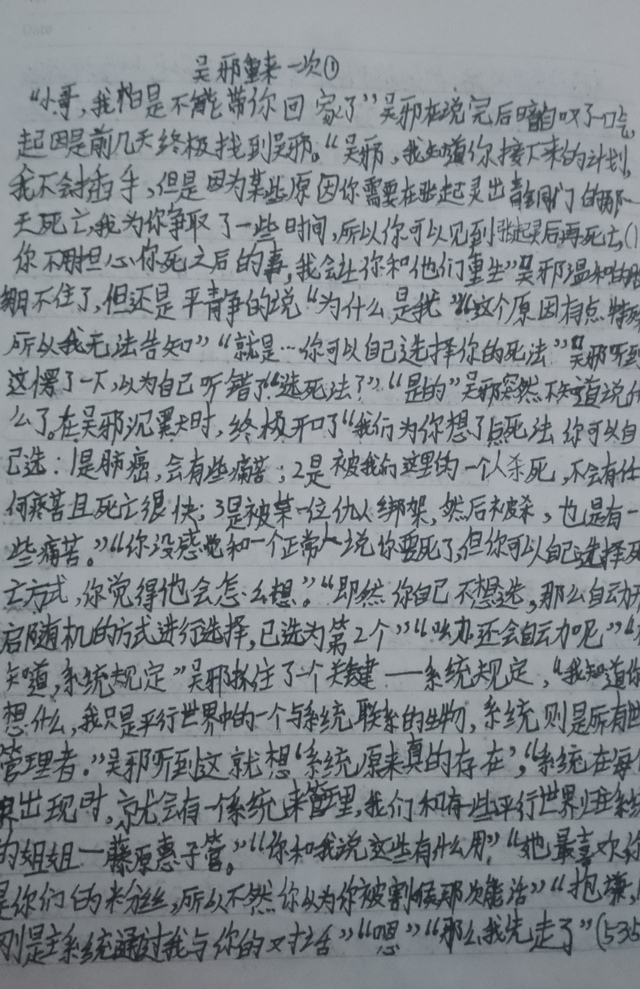 Date
吴邪重来一次①
“小哥，我怕是不能带你回家了”吴邪在说完后暗自叹了一口气
起因是前几天终极找到吴邪。“吴邪，我知道你接下来的计划，
我不会插手，但是因为某些原因你需要在张起灵出青铜门的那一
天死亡，我为你争取了一些时间，所以你可以见到张起灵后再死亡，(1
你不用担心你死之后的事，我会让你和他们重生”吴邪温和的
绷不住了，但还是平静的说“为什么是我”“这个原因有点特殊
所以我无法告知”“就是…你可以自己选择你的死法”吴邪听到
这愣了一下，以为自己听错了“选死法了？”“是的”吴邪突然不知道说什
么了。在吴邪沉默时，终极开口了“我们为你想了点死法你可以自
己选：1是肺癌，会有些痛苦；2是被我们这里的一个人杀死，不会有任
何疼苦且死亡很快；3是被某一位仇人绑架，然后被杀，也是有一
些痛苦。”“你没感觉和一个正常人说你要死了，但你可以自己选择死
亡方式，你觉得他会怎么想。”“即然你自己不想选，那么自动开
启随机的方式进行选择，已选为第2个”“还会自动呢”
知道，系统规定”吴邪抓住了一个关键——系统规定，“我知道你
想什么，我只是平行世界中的一个与系统联系的生物，系统则是所有世
管理者。”吴邪听到这就想‘系统原来真的存在’，“系统在每个
界出现时，就会有一个系统来管理，我们和有一些平行世界归主系统
的姐姐—藤原惠子管。”“你和我说这些有什么用”“她最喜欢你
是你们的粉丝，所以不然你以为你被割喉那次能活”“抱歉，
刚是主系统通过我与你的对话”“嗯”“那么我先走了”(535